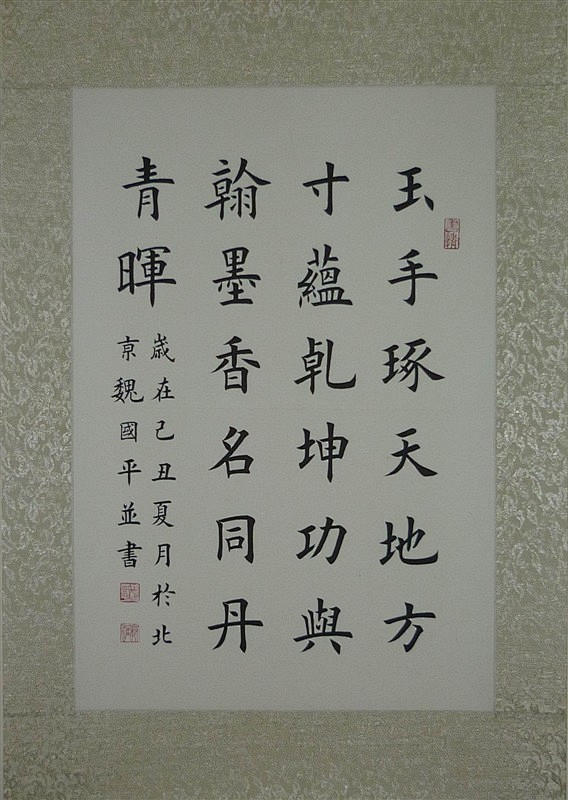 玉手琢天地方
寸蘊乹坤功與
翰墨香名同丹
青暉
歲在己丑夏月於北
亰魏國平並書